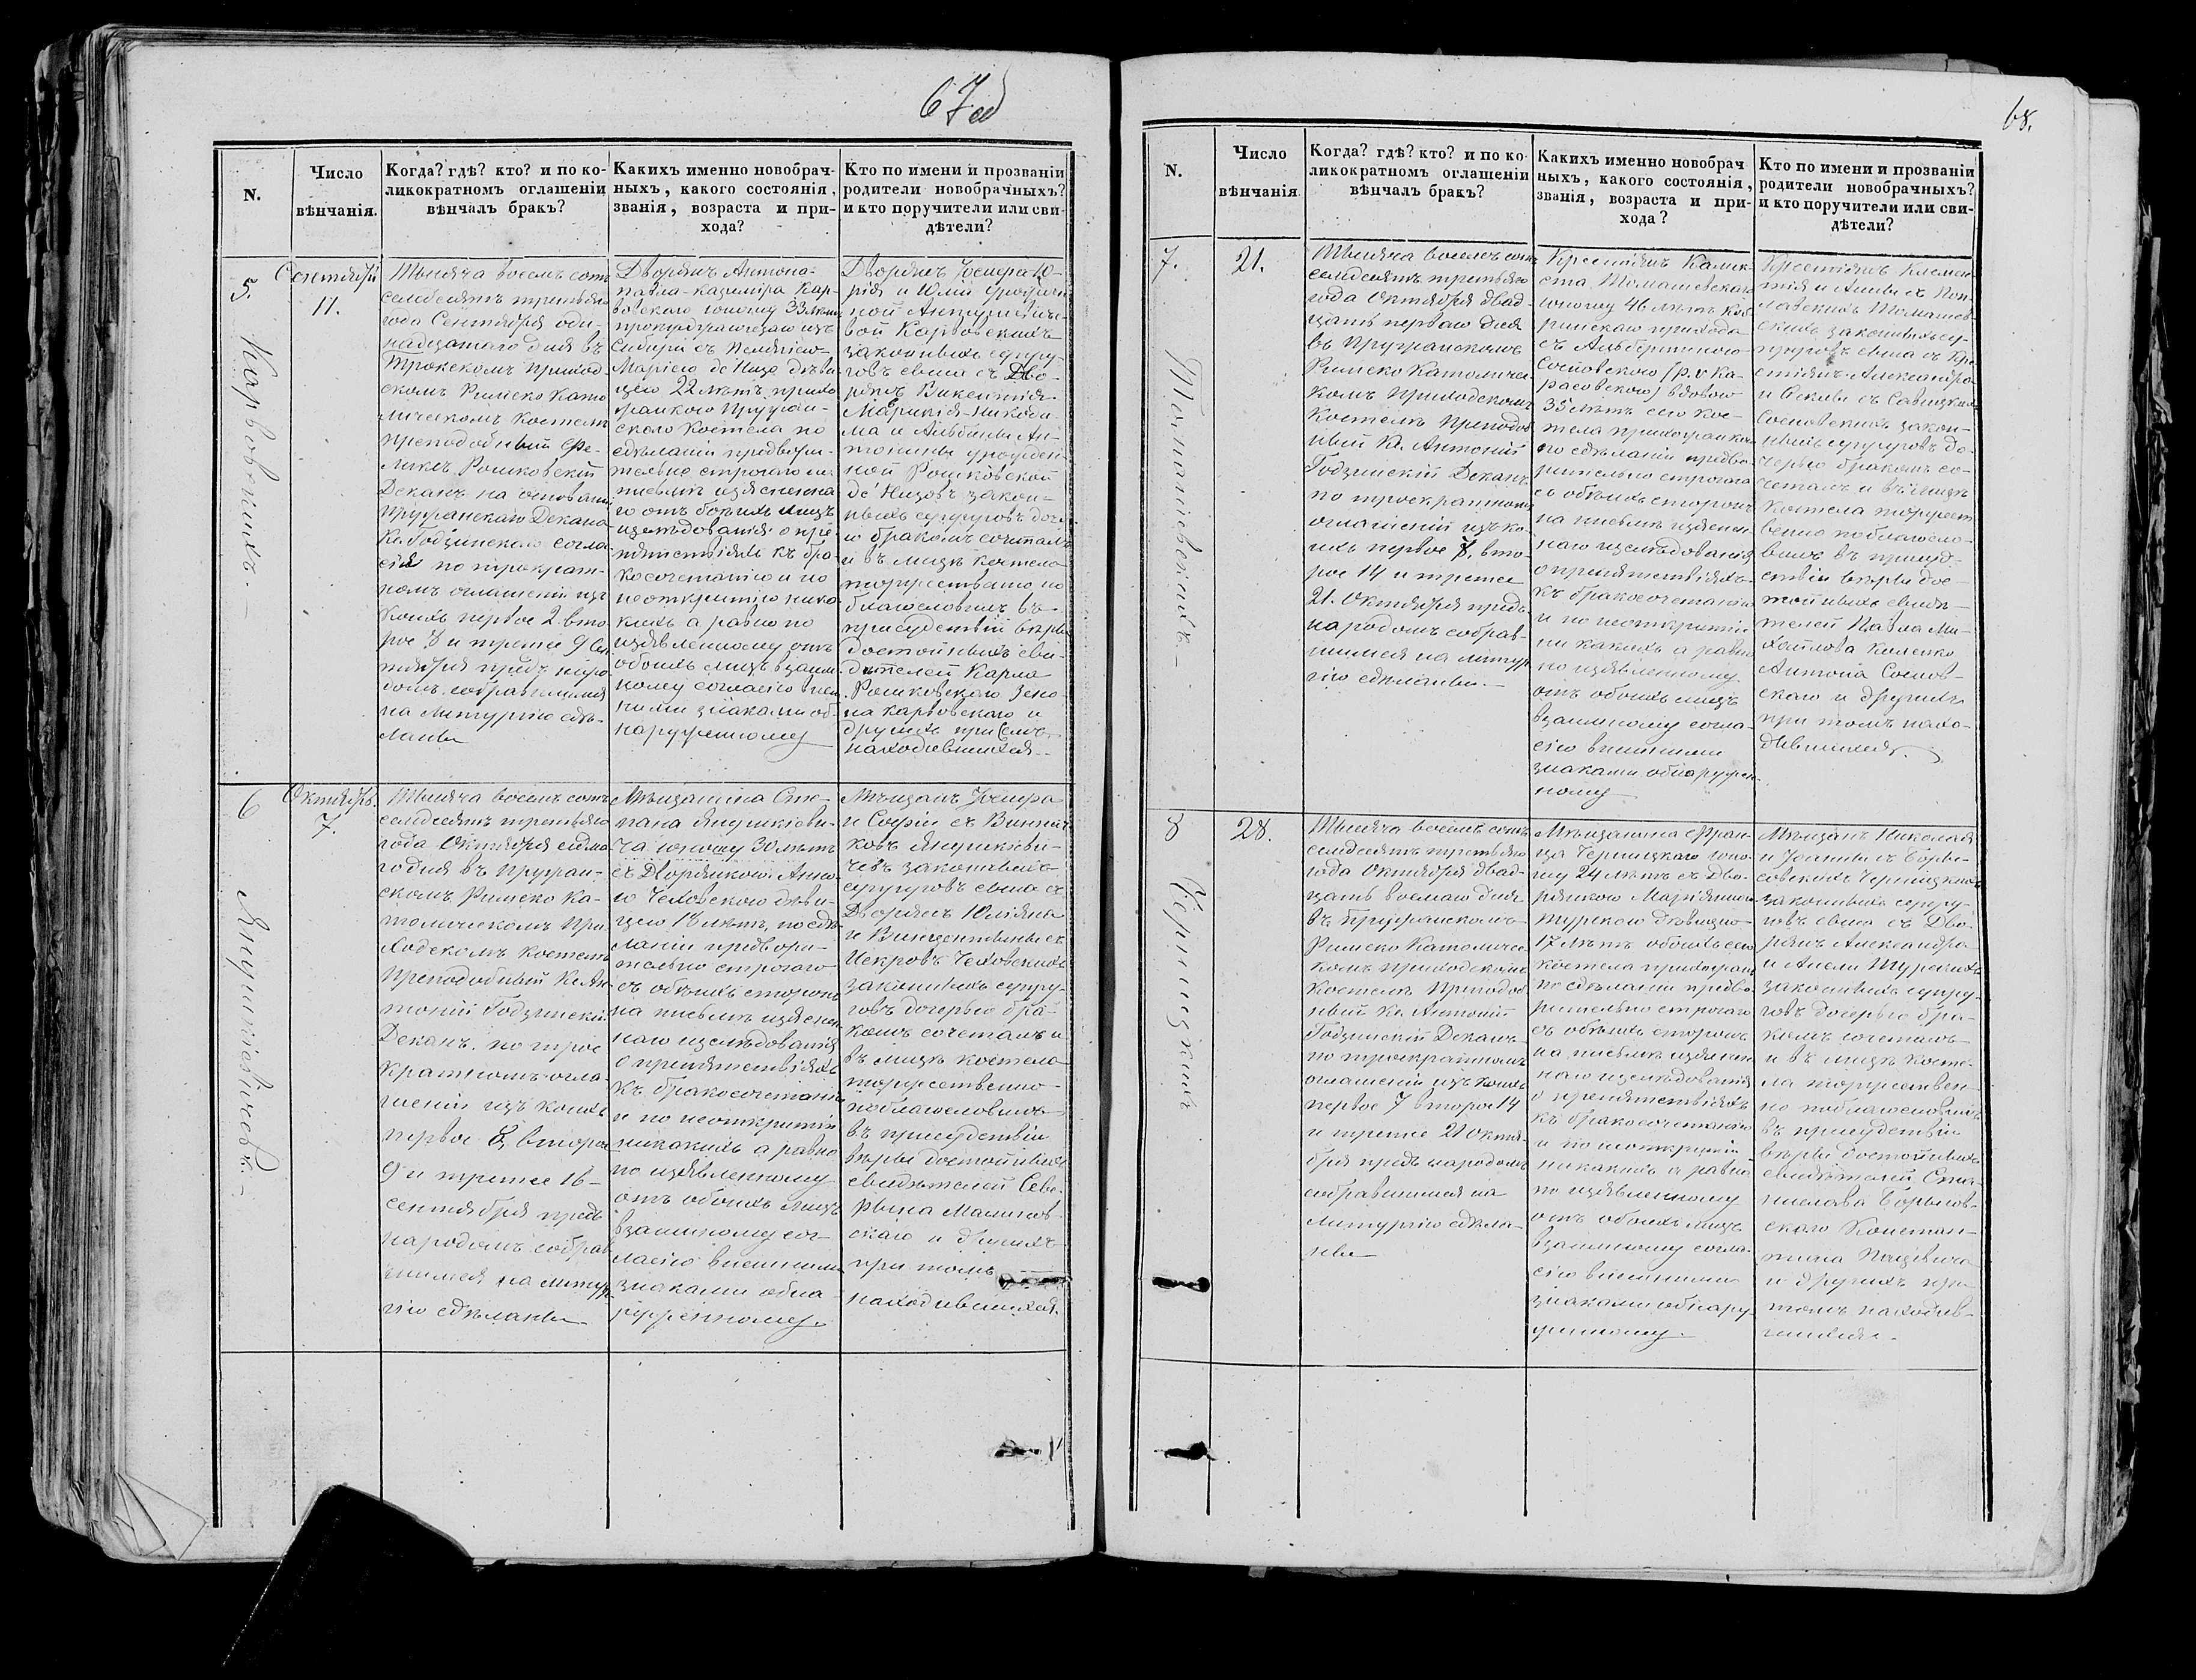 67об
N.
Число
вѣнчанія.
Когда? гдѣ? кто? и по ко-
ликократномъ оглашеніи
вѣнчалъ бракъ?
Какихъ именно новобрач-
ныхъ, какого состоянія,
званія, возраста и при-
хода?
Кто по имени и прозваніи
родители новобрачныхъ?
и кто поручители или сви-
дѣтели?
5.
Карповскихъ.
Сентября
11.
Тысяча восемь сотъ
семдесятъ третьяго
года Сентября оди-
надцатаго дня въ
Трокскомъ приход
скомъ Римско Като
лическомъ Костелѣ
преподобный Фе-
ликсъ Рошковскій
Деканъ на основаніи
пружанскаго Декана
Кс. Годзинскаго согла
сія по троекрат-
номъ оглашеніи изъ
коихъ первое 2 вто
рое 8 и третіе 9 Сен
тября предъ наро
домъ собравшимся
на Литургію сдѣ-
ланы
Дворянъ Антона-
Павла-Казиміра Кар-
повскаго юношу 33 лѣтъ
изъ
Сибири съ
Маріею де Низо дѣви
цею 22 лѣтъ прихо
жанкою Пружан-
скаго Костела по
сдѣланіи предвари-
тельно строгаго на
письмѣ изъясненна
го отъ боѣихъ лицъ
изслѣдованія о пре
пятствіяхъ къ бра-
косочетанію и по
неоткрытію ника
кихъ а равно по
изъявленному отъ
обоихъ лицъ взаим
ному согласію внеш
ними знаками об-
наруженному
Дворянъ Іосифа Ю-
рія и Юліи урожден
ной
вой Карповскихъ
законныхъ супру-
говъ сына съ Дво-
рянъ Викентія-
Никоди-
ма и Альбины Ан-
тонины урожден
ной Рошковской
де Низовъ закон-
ныхъ супруговъ доч.
ю бракомъ сочеталъ
и въ лицѣ костела
торжественно по
благословилъ въ
присудствіи вѣры
достойныхъ сви-
дѣтелей Карла
Рошковскаго Зено-
на Карповскаго и
другихъ при семъ
находившихся.
6
Янушкіевичовъ.
Октябрь.
7.
Тысяча восемь сотъ
семдесятъ третьяго
года Октября седма
го дня въ Пружан-
скомъ Римско Ка-
толическомъ При-
ходскомъ костелѣ
Преподобный Кс. Ан-
тоній Годзинскій
Деканъ по трое
кратномъ огла-
шеніи изъ коихъ
первое 8, второе
9 и третіе 16
сентября предъ
народомъ собрав
шимся на литур
гію сдѣланы
Мѣщанина Сте-
пана Янушкіеви-
ча юношу 30 лѣтъ
съ Дворянкою Анно
ю Чеховскою дѣви-
цею 18 лѣтъ, по сдѣ
ланіи предвари-
тельно строгаго
съ обѣихъ сторонъ
на письмѣ изъяснен
наго изслѣдованія
о препятствіяхъ
къ бракосочетанію
и по неоткрытіи
никакихъ а равно
по изъявленному
отъ обоихъ лицъ
взаимному сог-
ласію внешними
знаками обна-
руженному.
Мѣщанъ Іосифа
и Софіи съ Винниц
ковъ Янушкіеви-
чевъ законныхъ
супруговъ сына съ
Дворянъ Юліяна
и Винцентины съ
Искровъ Чеховскихъ
законныхъ супру-
говъ дочерью бра-
комъ сочеталъ и
въ лицѣ костела
торжественно
поблагословилъ
въ присудствіи
вѣры достойныхъ
свидѣтелей Севе-
рына Малинов-
скаго и другихъ
при томъ
находившихся.
68.
N.
Число
вѣнчанія.
Когда? гдѣ? кто? и по ко
ликократномъ оглашеніи
вѣнчалъ бракъ?
Какихъ именно новобрач
ныхъ, какого состоянія,
званія, возраста и при-
хода?
Кто по имени и прозваніи
родители новобрачныхъ?
и кто поручители или сви-
дѣтели?
7.
Томашевскихъ
21.
Тысяча восемь сотъ
семдесятъ третьяго
года Октября двад-
цать перваго дня
въ Пружанскомъ
Римско Католичес
комъ Приходскомъ
Костелѣ Преподоб
ный Кс. Антоній
Годзинскій Деканъ
по троекратномъ
оглашеніи изъ ко-
ихъ первое 7, вто
рое 14 и третее
21. Октября предъ
народомъ собрав-
шимся на литур
гію сдѣланы.
Крестьянъ Калик-
ста Томашевскаго
юношу 46 лѣтъ Коб
ринскаго прихода
съ Альбертиною
Сосновскою (р. Ка-
расовскою) вдовою
35 лѣтъ сего кос-
тела прихожанкою
по сдѣланіи предва
рительно строгаго
съ обѣихъ сторонъ
на письмѣ изъяснен
наго изслѣдованія
о препятствіяхъ
къ бракосочетанію
и по неоткрытіи
ни какихъ а равно
по изъявленному
отъ обоихъ лицъ
взаимному согла-
сію внешними
знаками обнаружен
ному
Крестьянъ Климен-
тія и Анны съ Поп-
лавскихъ Томашев
скихъ законныхъ су-
пруговъ сына съ Кре
стьянъ Александра
и Феклы съ Савицкихъ
Сосновскихъ закон-
ныхъ супруговъ до-
черью бракомъ со-
четалъ и въ лицѣ
Костела торжест
венно поблагосло-
вилъ въ присуд-
ствіи вѣры дос-
тойныхъ свидѣ-
телей Павла Ми-
хайлова
Антона Соснов-
скаго и другихъ
при томъ нахо-
дившихся.
8
Черницкихъ
28.
Тысяча восемь сотъ
семдесятъ третьяго
года Октября двад-
цать восмаго дня
въ Пружанскомъ
Римско Католичес
комъ Приходскомъ
Костелѣ Преподоб
ный Кс. Антоній
Годзинскій Деканъ
по троекратномъ
оглашеніи изъ коихъ
первое 7 второе 14
и третіе 21 Октя-
бря предъ народомъ
собравшимся на
Литургію сдѣла-
ны
Мѣщанина Фран-
ца Черницкаго юно-
шу 24 лѣтъ съ Дво-
рянкою Маріянною
Турскою дѣвицею
17 лѣтъ обоихъ сего
костела прихожанъ
по сдѣланіи предва
рительно строгаго
съ обѣихъ сторонъ
на письмѣ изъяснен
наго изслѣдованія
о препятствіяхъ
къ бракосочетанію
и по неоткрытіи
никакихъ а равно
по изъявленному
отъ обоихъ лицъ
взаимному согла-
сію внешними
знаками обнару
женному.
Мѣщанъ Николая
и Іоанны съ Боры-
совскихъ Черницкихъ
законныхъ супру-
говъ сына съ Дво-
рянъ Александра
и Анели Турскихъ
законныхъ супру-
говъ дочерью бра-
комъ сочеталъ
и въ лицѣ Косте-
ла торжествен-
но поблагословилъ
въ присудствіи
вѣры достойныхъ
свидѣтелей Стан-
ислава Борысов-
скаго Констан-
тина
и другихъ при
томъ находив-
шихся.